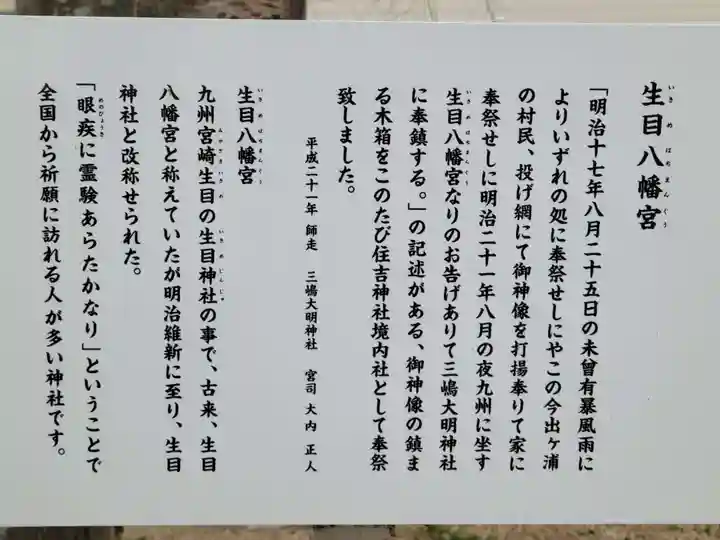 生目八幡宮
いきめはちまんぐう
「明治十七年八月二十五日の未曾有暴風雨に
よりいずれの処に奉祭せしにやこの今出ヶ浦
の村民、投げ網にて御神像を打揚奉りて家に
奉祭せしに明治二十一年八月の夜九州に坐す
生目八幡宮なりのお告げありて三嶋大明神社
いきめはちまんぐう
に奉鎮する。」の記述がある、御神像の鎮ま
る木箱をこのたび住吉神社境内社として奉祭
致しました。
平成二十一年 師走 三嶋大明神社 宮司 大内 正人
生目八幡宮
いきめはちまんぐう
九州宮崎生目の生目神社の事で、古来、生目
みやざきいきめ いきめじんじゃ
八幡宮と称えていたが明治維新に至り、生目
神社と改称せられた。
「眼疾に霊験あらたかなり」ということで
めのびょうき
全国から祈願に訪れる人が多い神社です。